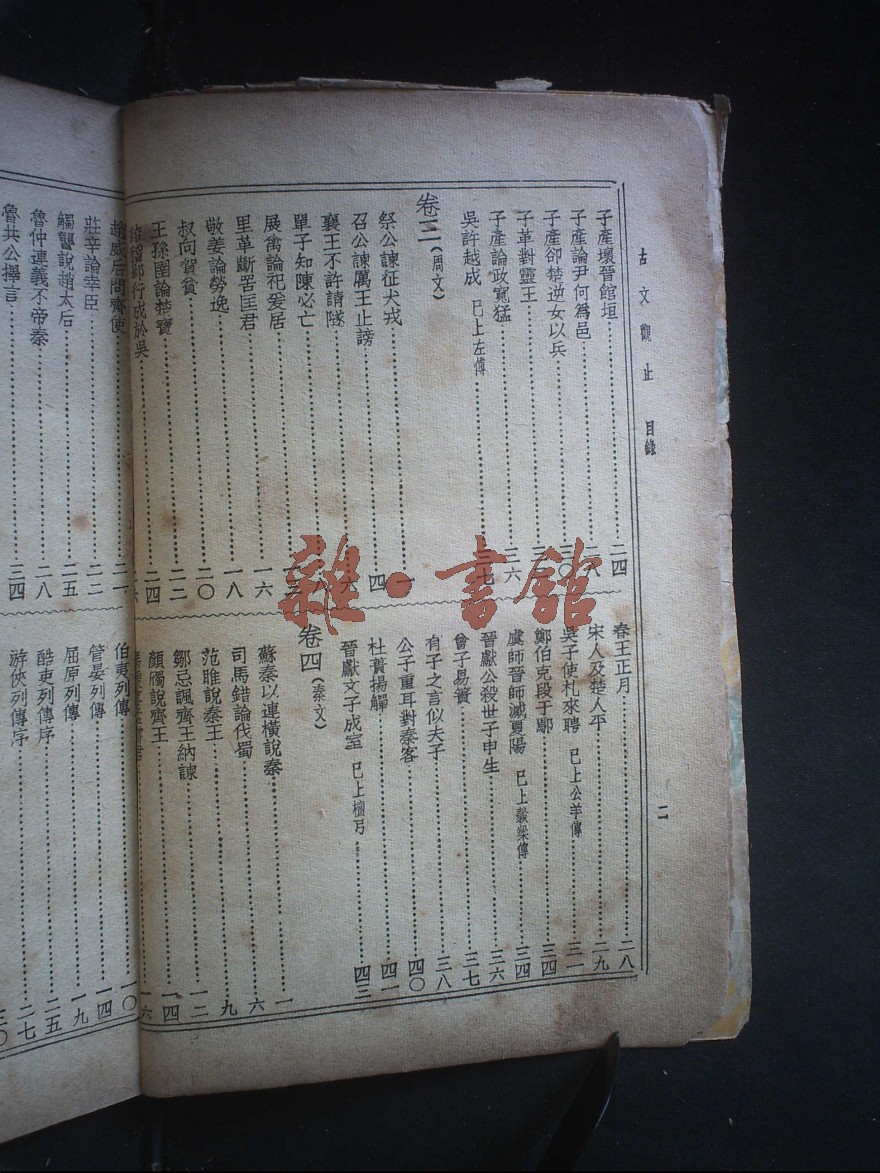 古文觀止 目錄 二
子產壞晉館垣 二四
子產論尹何爲邑
子產卻楚逆女以兵 三〇
子革對靈王
子產論政寬猛 三六
吳許越成 已上左傳
卷三(周文)
祭公諫征犬戎 一
召公諫厲王止謗 四
襄王不許請隧
單子知陳必亡
展禽論祀爰居
里革斷罟匡君 一六
敬姜論勞逸 一八
叔向賀貧 二〇
王孫圉論楚寶 二二
行成於吳 二四
春王正月 二八
宋人及楚人平 二九
吳子使札來聘 已上公羊傳 三一
鄭伯克段于鄢 三四
虞師晉師滅夏陽 已上穀梁傳 三四
晉獻公殺世子申生 三六
曾子易簀 三七
有子之言似夫子 三八
公子重耳對秦客 四〇
杜蕢揚觶 四一
晉獻文子成室 已上檀弓 四三
卷四(秦文)
蘇秦以連橫說秦 一
司馬錯論伐蜀 六
范雎說秦王 九
鄒忌諷齊王納諫 一二
顏斶說齊王 一四
一六
趙威后問齊使 二一
莊辛論幸臣 二二
觸讋說趙太后 二五
魯仲連義不帝秦 二八
魯共公擇言 三四
伯夷列傳 一〇
管晏列傳 一四
屈原列傳 一九
酷吏列傳序 二五
游俠列傳序 二七
雜·書館